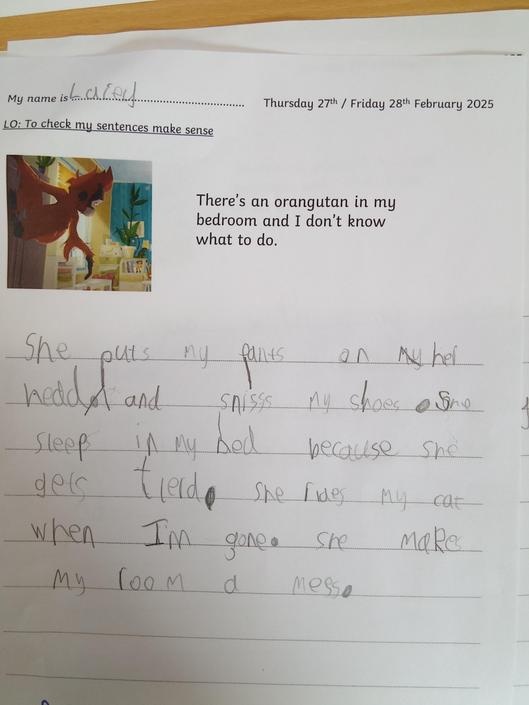 My name is Laiey
Thursday 27th / Friday 28th February 2025
LO: To check my sentences make sense
There's an orangutan in my
bedroom and I don't know
what to do.
She puts my pants on her
hedd and snisss my shoes. She
sleep in my bed because she
gets tierd. she rides my cat
when I'm gone. she makes
my room a mess.